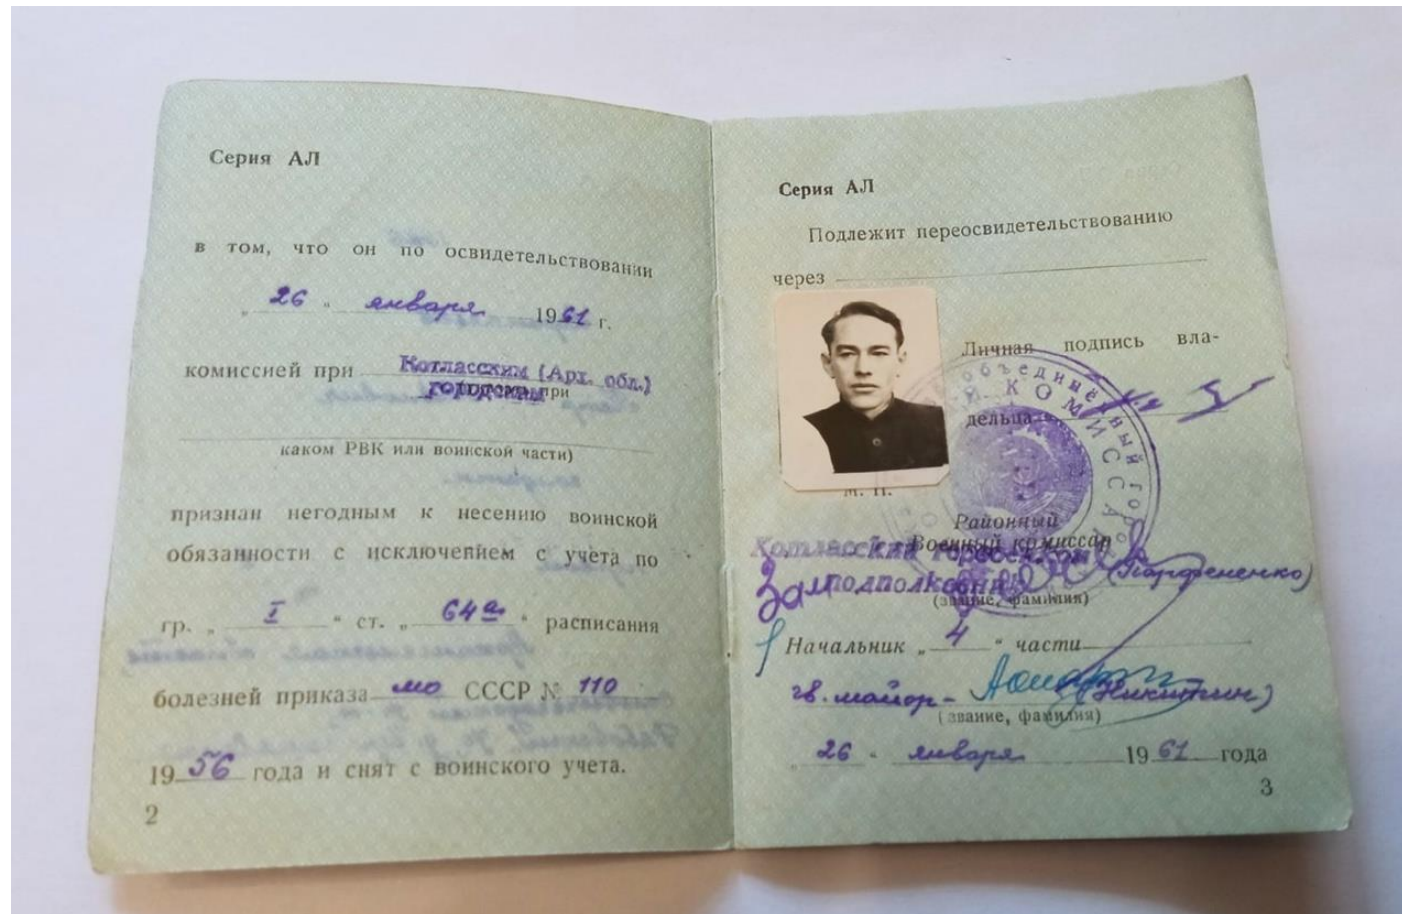 Серия АЛ
в том, что он по освидетельствовании
„ 26 " января 1961 г.
комиссией при Котласским (Арх. обл.)
городским при
каком РВК или воинской части)
признан негодным к несению воинской
обязанности с исключением с учета по
гр. „ I " ст. „ 64а " расписания
болезней приказа МО СССР № 110
1956 года и снят с воинского учета.
2
Серия АЛ
Подлежит переосвидетельствованию
через
Личная подпись вла-
дельца
объединенный гор
КОМИССАР
М. П.
Районный
Военный комиссар
Котласский
Зам подполковник (Парфененко)
(звание, фамилия)
Начальник „ 4 " части
гв. майор - (Никитин)
(звание, фамилия)
„ 26 " января 1961 года
3